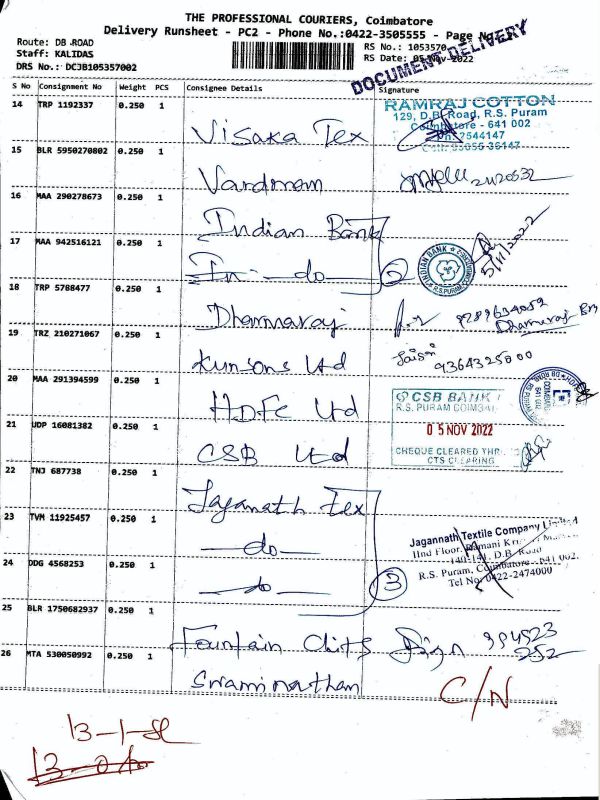 THE PROFESSIONAL COURIERS, Coimbatore
Delivery Runsheet - PC2 - Phone No.:0422-3505555 - Page No
Route: DB ROAD
Staff: KALIDAS
DRS No.: DCJB105357002
RS No.: 1053570
RS Date: 05-Nov-2022
DOCUMENT DELIVERY
S No Consignment No Weight PCS Consignee Details Signature
14 TRP 1192337 0.250 1 Visaka Tex
RAMRAJ COTTON
129, D.B. Road, R.S. Puram
Coimbatore - 641 002
2544147
15 BLR 5950270802 0.250 1 Vardmam
16 MAA 290278673 0.250 1 Indian Bank
17 MAA 942516121 0.250 1 In- do 2
INDIAN BANK
R.S.PURAM
5/11/2022
18 TRP 5788477 0.250 1 Dharmaraj
9289634052
19 TRZ 210271067 0.250 1 Kunsons Ltd
9364325000
20 MAA 291394599 0.250 1 HDFC Ltd
21 UDP 16081382 0.250 1 CSB Ltd
CSB BANK
R.S. PURAM COIMBAT
05 NOV 2022
CHEQUE CLEARED THR
CTS CLEARING
22 TNJ 687738 0.250 1 Jaganath Tex
23 TVM 11925457 0.250 1 do
24 DDG 4568253 0.250 1 do 3
Jagannath Textile Company Limited
IInd Floor,
140-141, D.B. Road
R.S. Puram, Coimbatore - 641 002.
Tel No: 0422-2474000
25 BLR 1750682937 0.250 1 Fountain Chits Sign 394523
252
26 MTA 530050992 0.250 1 Swaminathan C/N
13-1-SL